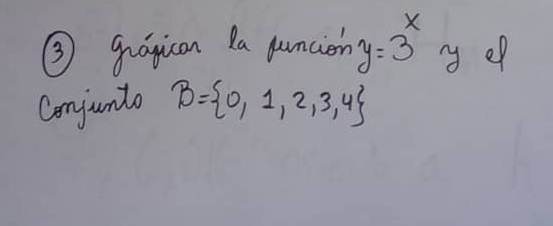 ③ gráficar la función y = 3^x y el
Conjunto B={0, 1, 2, 3, 4}